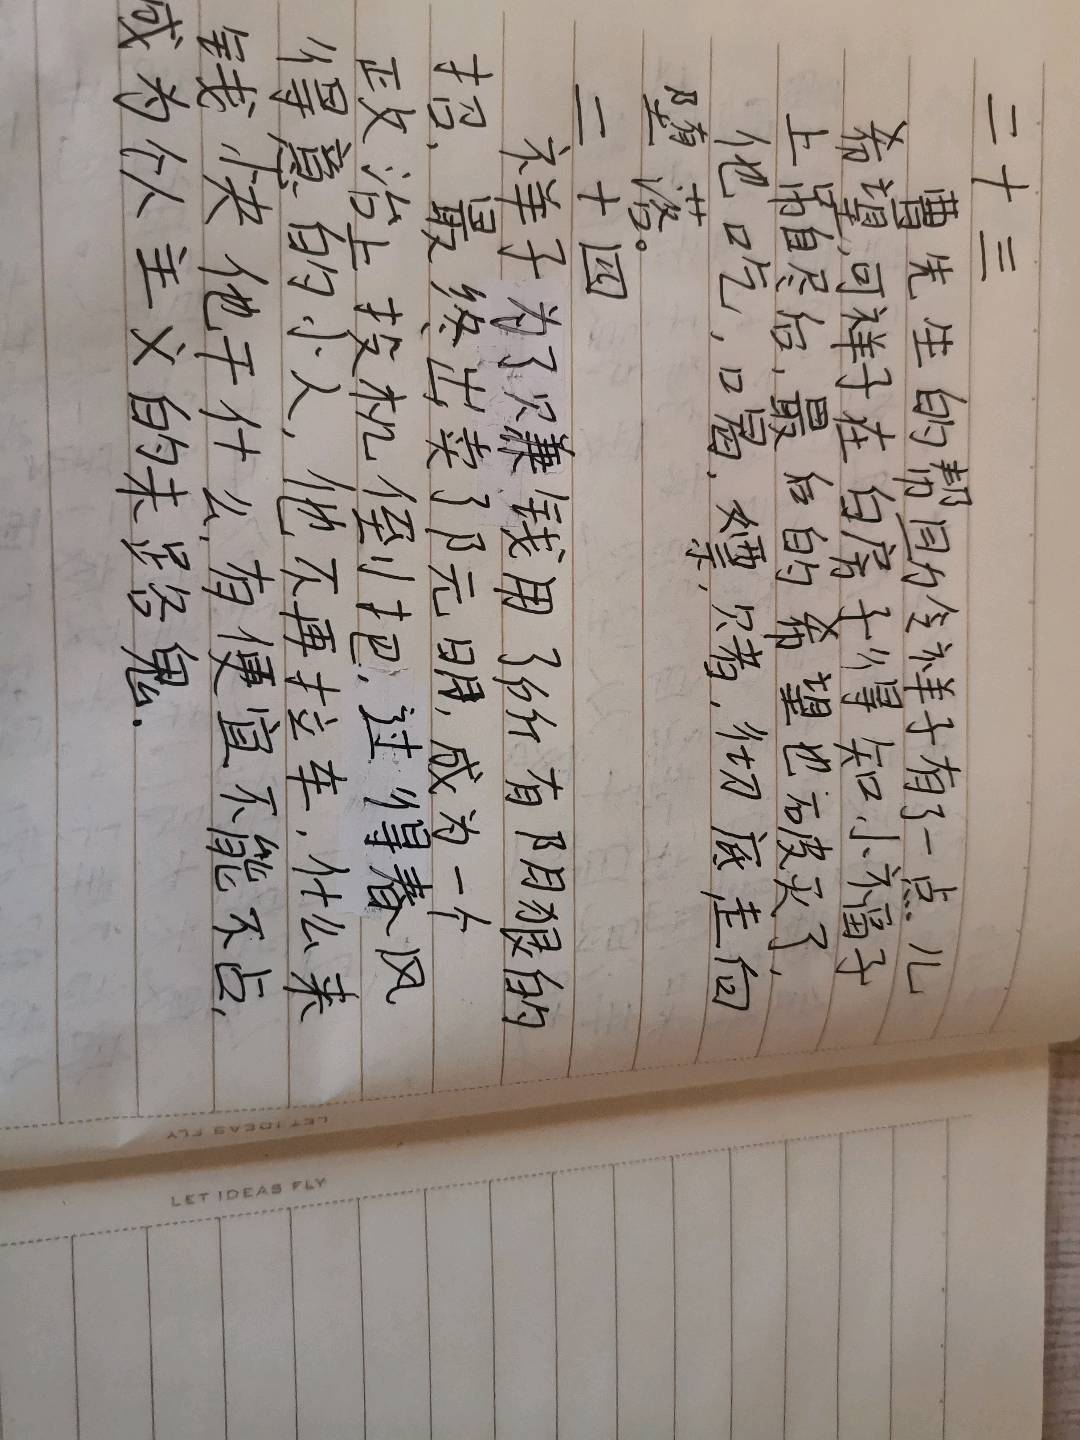 二十三
曹先生的帮同分令祥子有了一点儿
希望,可祥子在白房子得知小福子
上吊自尽后,最后的希望也破灭了,
他口吃,口喝,嫖,赌,彻底走向
堕落。
二十四
祥子为了赚钱用了分外有阴狠的
招,最终出卖了阮元明,成为一个
政治上投机倒把,过得春风
得意的小人,他不再拉车,什么来
钱快他干什么,有便宜不能不占,
成为个人主义的末路鬼.
LET IDEAS FLY
LET IDEAS FLY